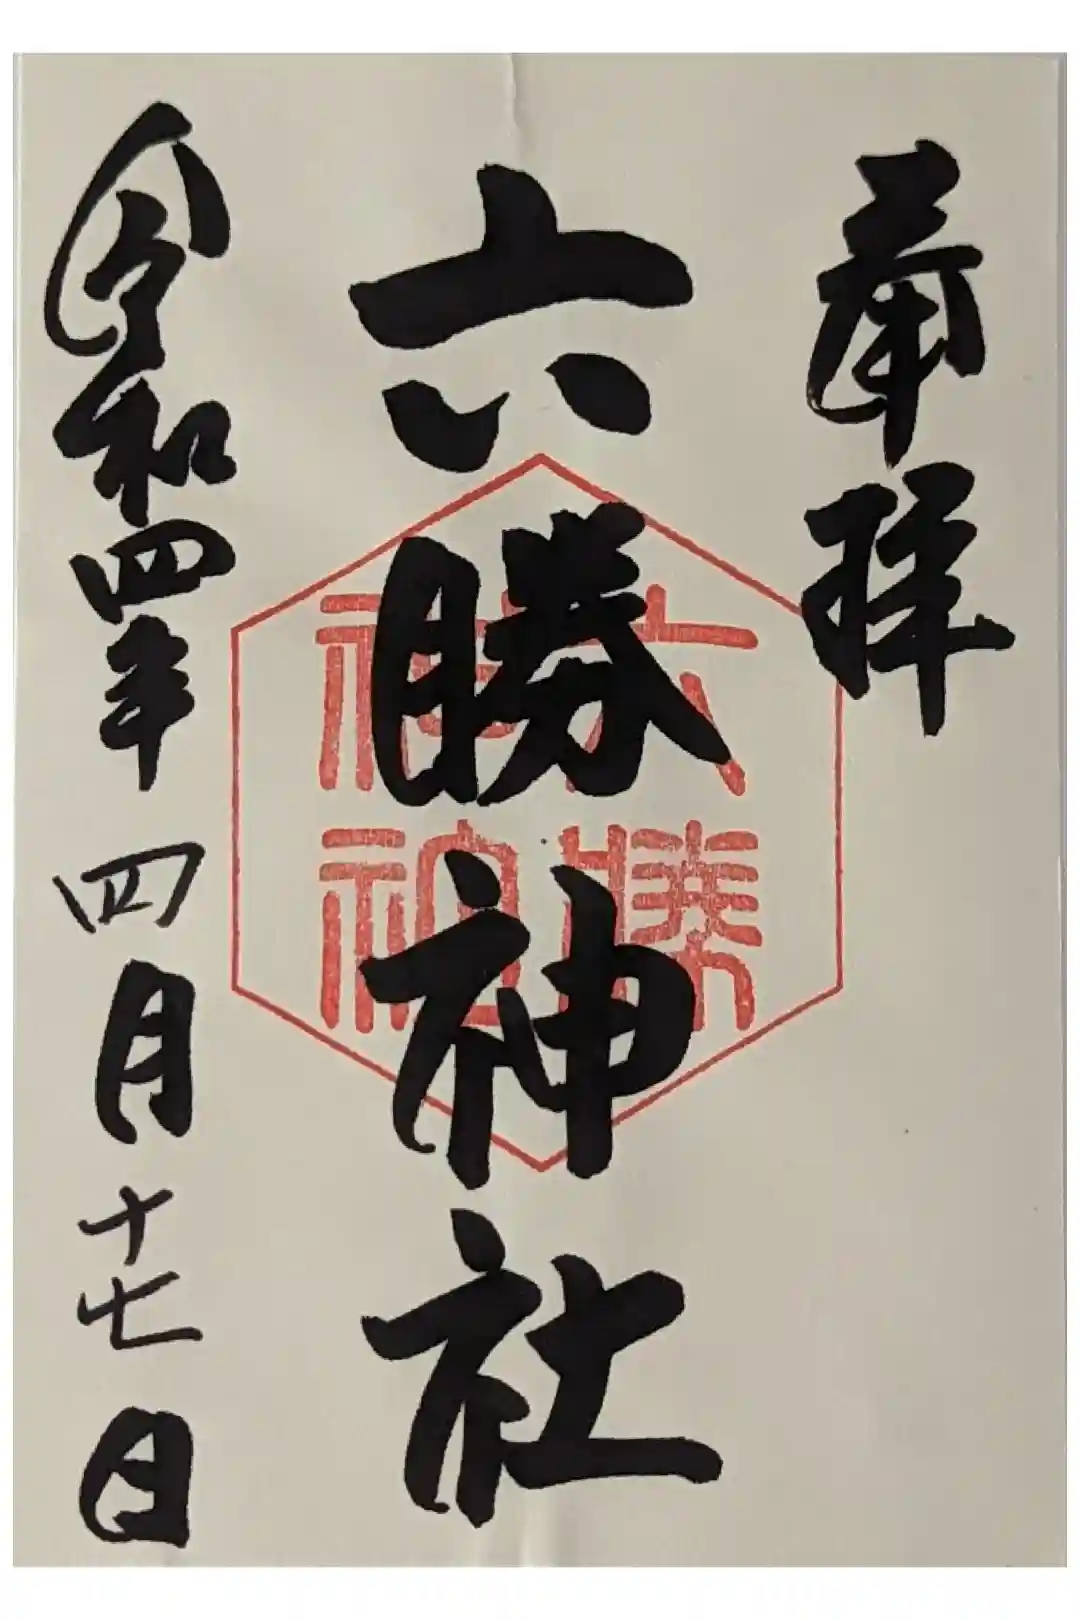 奉拝
六勝神社
六勝
神社
令和四年四月十七日